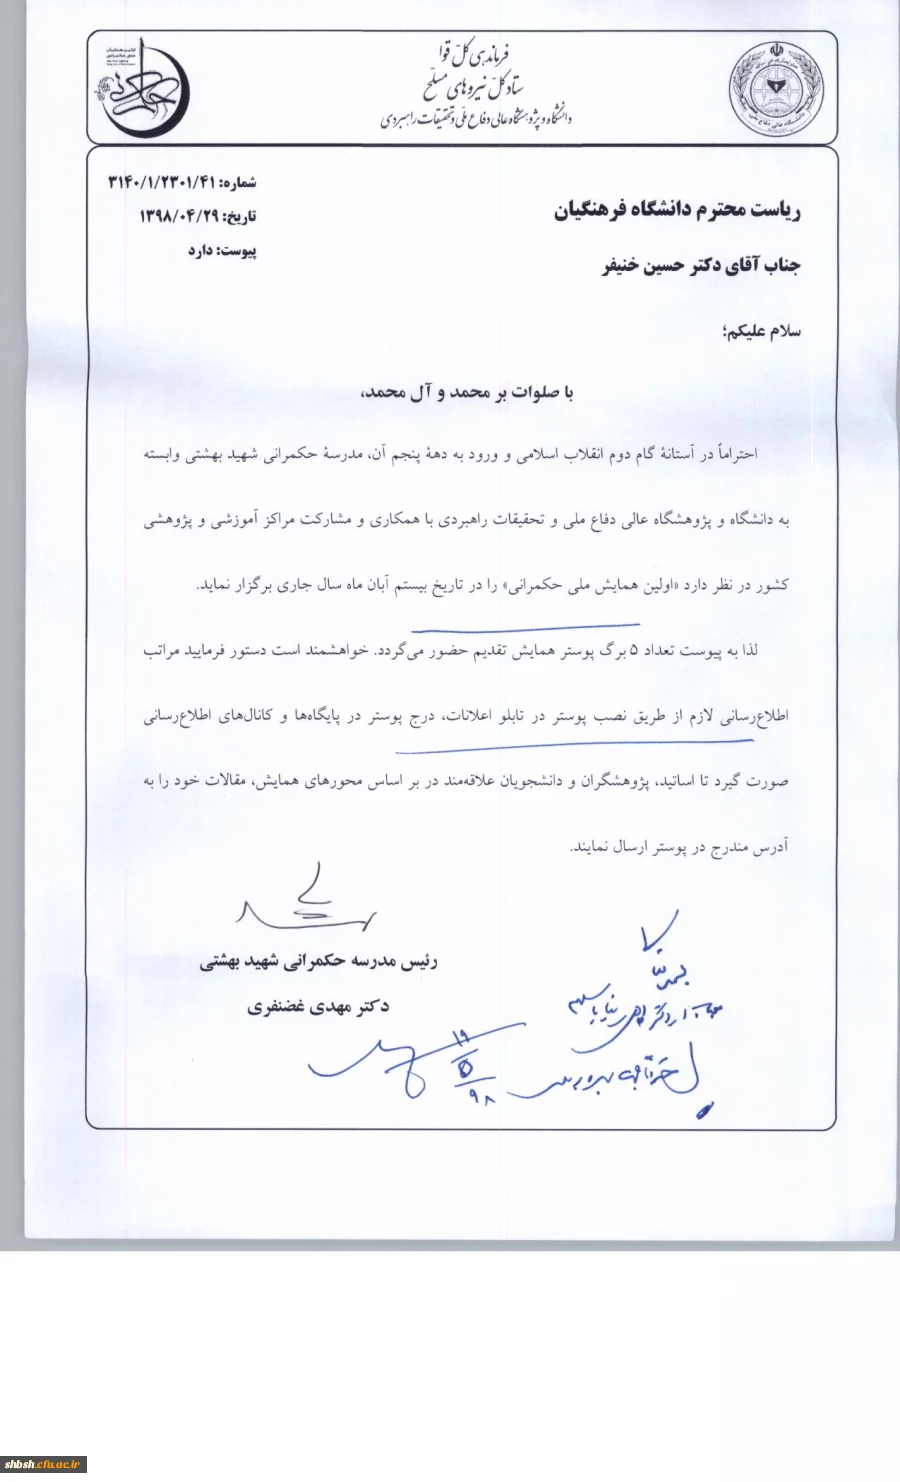 فرماندهی کلّ قوا
ستاد کلّ نیروهای مسلّح
دانشگاه و پژوهشگاه عالی دفاع ملّی و تحقیقات راهبردی
شماره: ۳۱۴۰/۱/۲۳۰۱/۴۱
تاریخ: ۱۳۹۸/۰۴/۲۹
پیوست: دارد
ریاست محترم دانشگاه فرهنگیان
جناب آقای دکتر حسین خنیفر
سلام علیکم؛
با صلوات بر محمد و آل محمد،
احتراماً در آستانهٔ گام دوم انقلاب اسلامی و ورود به دههٔ پنجم آن، مدرسهٔ حکمرانی شهید بهشتی وابسته
به دانشگاه و پژوهشگاه عالی دفاع ملی و تحقیقات راهبردی با همکاری و مشارکت مراکز آموزشی و پژوهشی
کشور در نظر دارد «اولین همایش ملی حکمرانی» را در تاریخ بیستم آبان ماه سال جاری برگزار نماید.
لذا به پیوست تعداد ۵ برگ پوستر همایش تقدیم حضور می‌گردد. خواهشمند است دستور فرمایید مراتب
اطلاع‌رسانی لازم از طریق نصب پوستر در تابلو اعلانات، درج پوستر در پایگاه‌ها و کانال‌های اطلاع‌رسانی
صورت گیرد تا اساتید، پژوهشگران و دانشجویان علاقه‌مند در بر اساس محورهای همایش، مقالات خود را به
آدرس مندرج در پوستر ارسال نمایند.
رئیس مدرسه حکمرانی شهید بهشتی
دکتر مهدی غضنفری
۱۹
۵
۹۸
shbsh.cfu.ac.ir